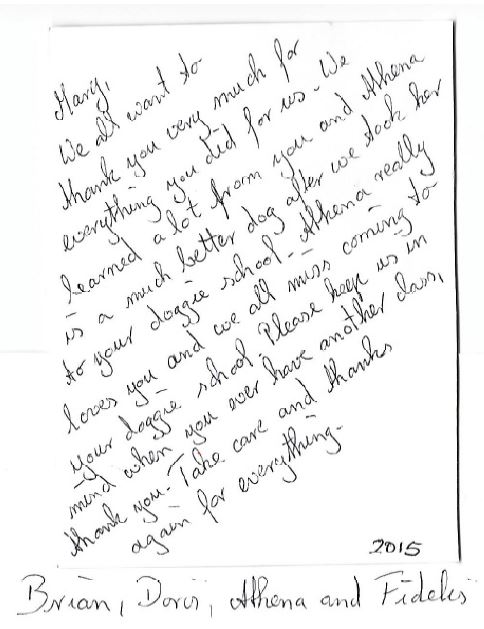 Marg,
We all want to
thank you very much for
everything you did for us. We
learned a lot from you and Athena
is a much better dog after we took her
to your doggie school. Athena really
loves you and we all miss coming to
your doggie school. Please keep us in
mind when you ever have another class,
thank you. Take care and thanks
again for everything.
2015
Brian, Doris, Athena and Fideles